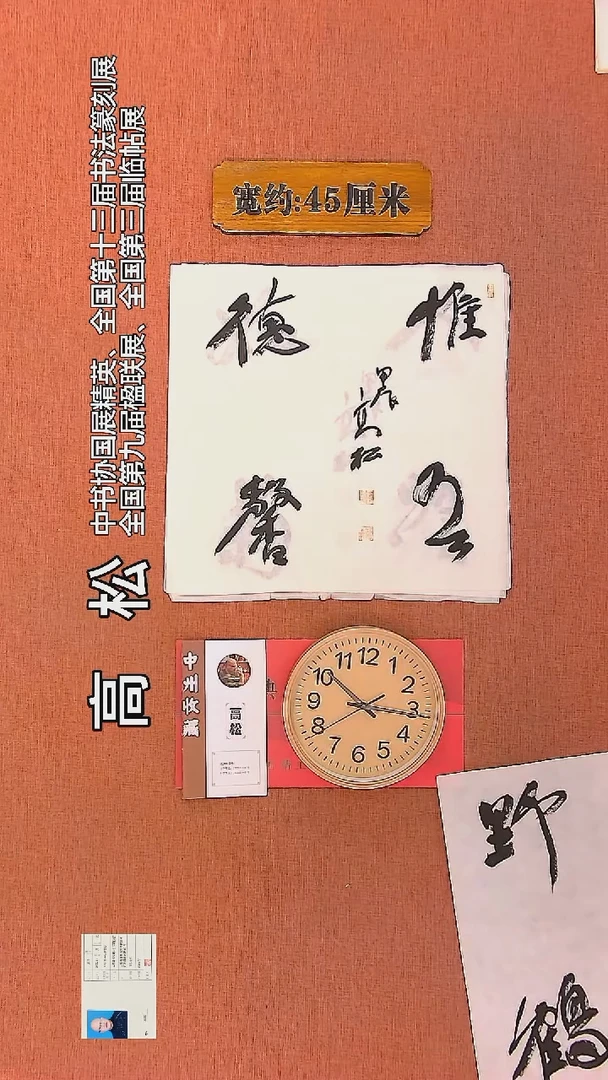 中书协国展精英、全国第十三届书法篆刻展
全国第九届楹联展、全国第三届临帖展
高 松
宽约:45厘米
惟吾
德馨
甲辰高松
高松
12
1
2
3
4
5
6
7
8
9
10
11
野鹤